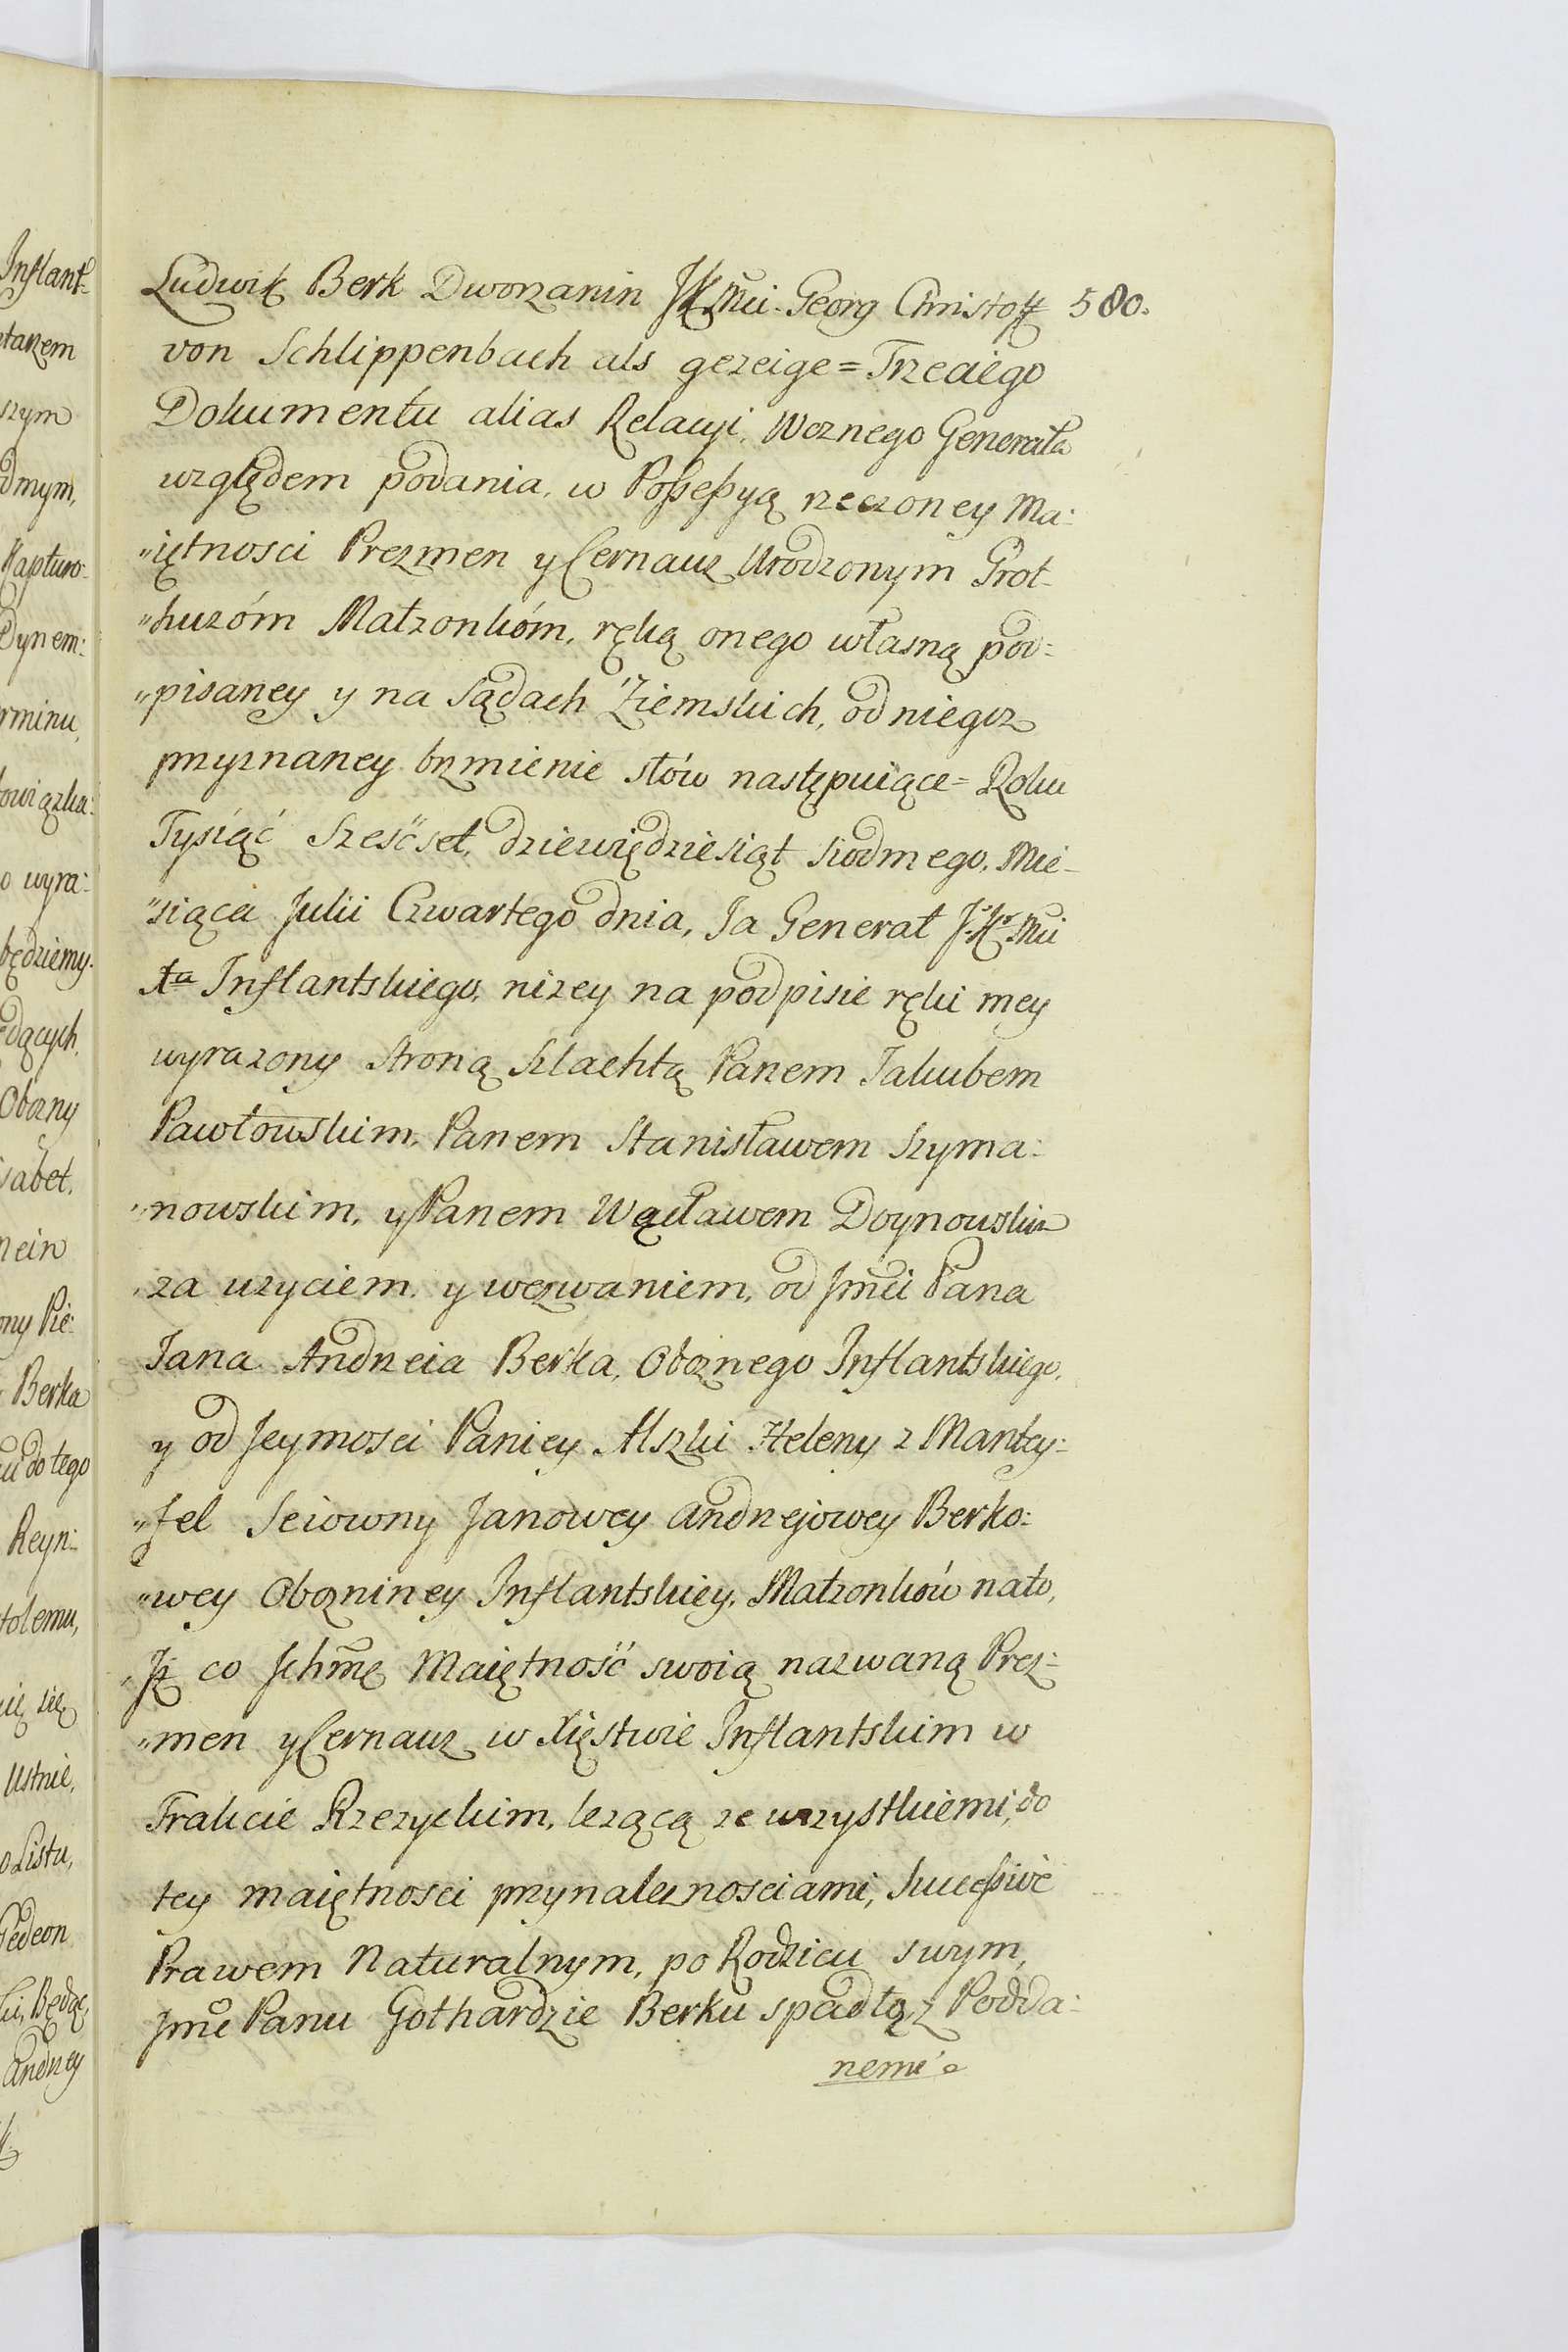 Ludwik Berk Dworzanin JKMci. Georg Christoff 580.
von Schlippenbach als gezeige = Trzeciego
Dokumentu alias Relacyi, Woznego Generała
względem podania, w Poſseſsyą rzeczoney Ma:
"iętnosci Prezmen y Cernauz Urodzonym Grot-
"huzóm Małzonkóm, ręką onego własną pod=
"pisaney y na Sądach Ziemskich, od niegoz
przyznaney brzmienie słów następuiące = Roku
Tysiąć Sześćset, dziewiędziesiąt siodmego, Mie-
"siąca Julii Czwartego dnia, Ja Generał J. Kr. Mci
Xa Inflantskiego, nizey na podpisie ręki mey
wyrazony stroną Szlachtą Panem Jakubem
Pawłowskim, Panem Stanisławem Szyma:
"nowskim, y Panem Wacławem Doynowskim
"za uzyciem y wezwaniem, od Jmći Pana
Jana Andrzeia Berka, Oboznego Inflantskiego,
y od Jeymosci Paniey Alszki Heleny z Mantey:
"fel Seiowny Janowey Andrzejowey Berko:
"wey Obozniney Inflantskiey, Małzonków nato,
"Jz co Jchmę Maiętność swoią nazwaną Prez=
"men y Cernauz w Xięstwie Inflantskim w
Trakcie Rzezyckim, lezącą ze wszystkiemi, do
tey maiętnosci przynaleznosciami, Succeſsive
Prawem Naturalnym, po Rodzicu swym,
Jmć Panu Gothardzie Berku spadłą, z Podda:
nemi
Inflant=
tarzem
szym
dmym,
Kapturo:
Dynem:
rminu,
owiązka:
o wyra:
będziemy.
dących,
Obozny
sabet,
nein
ony Pie:
Berka
do tego
Reyn:
tolemu,
ię się
Ustnie,
o Listu,
Gedeon
ki, Będąc,
Andrzey